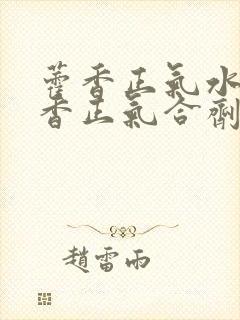 藿香正氣水
香正氣合劑
趙雷雨